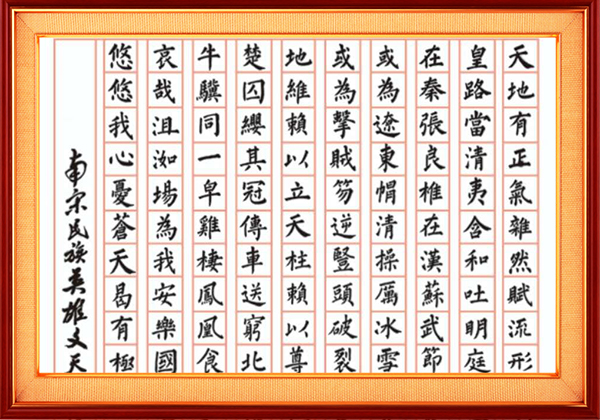 天地有正氣雜然賦流形
皇路當清夷含和吐明庭
在秦張良椎在漢蘇武節
或為遼東帽清操厲冰雪
或為擊賊笏逆豎頭破裂
地維賴以立天柱賴以尊
楚囚纓其冠傳車送窮北
牛驥同一皁雞棲鳳凰食
哀哉沮洳場為我安樂國
悠悠我心憂蒼天曷有極
南宋民族英雄文天